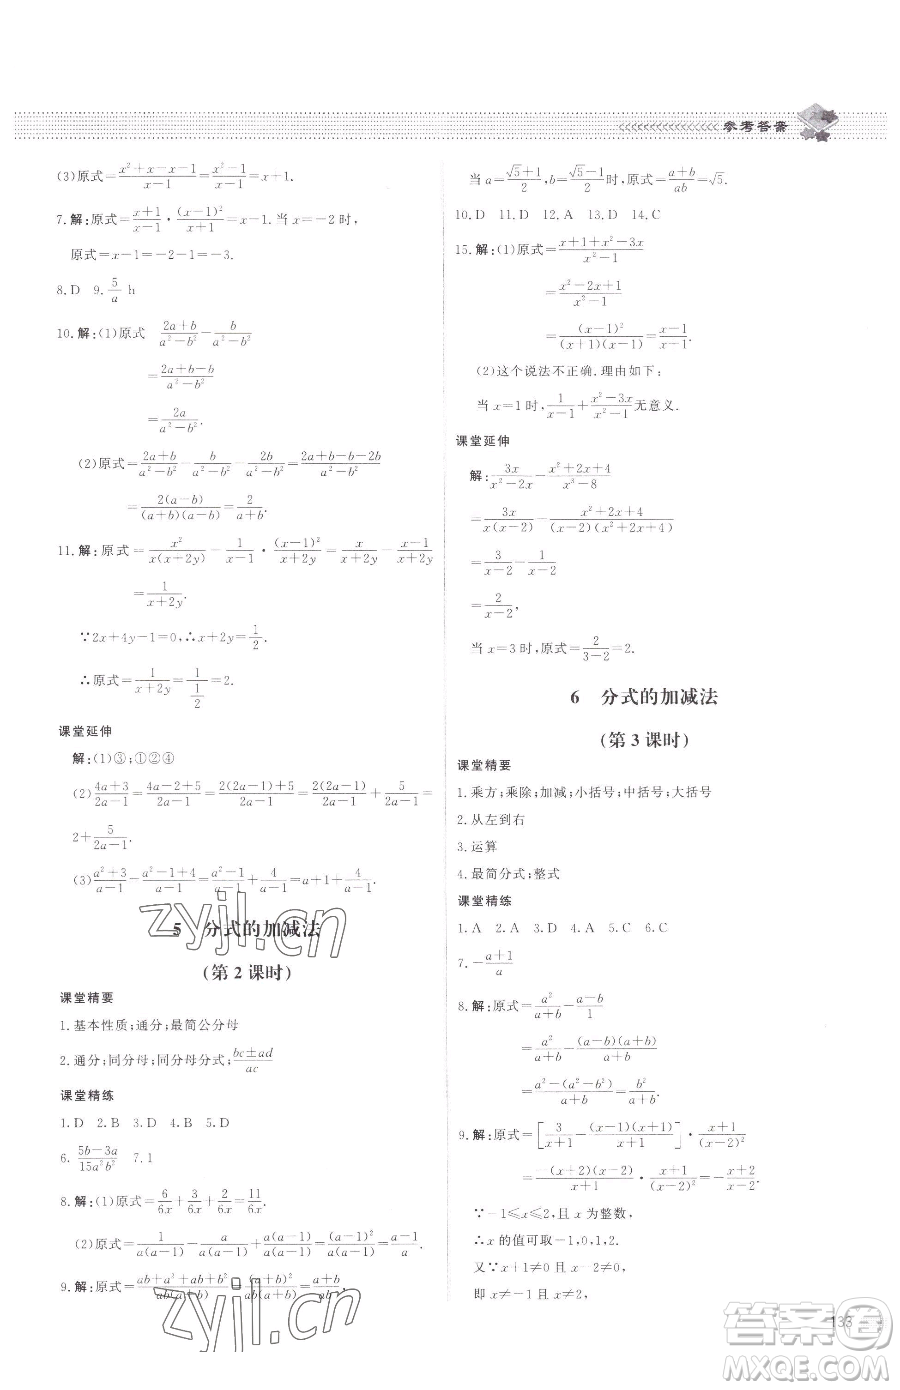 参考答案
(3)原式=\frac{x^2+x-x-1}{x-1}=\frac{x^2-1}{x-1}=x+1.
7.解:原式=\frac{x+1}{x-1}·\frac{(x-1)^2}{x+1}=x-1.当 x=-2 时,
原式=x-1=-2-1=-3.
8.D 9.\frac{5}{a} h
10.解:(1)原式 \frac{2a+b}{a^2-b^2}-\frac{b}{a^2-b^2}
=\frac{2a+b-b}{a^2-b^2}
=\frac{2a}{a^2-b^2}.
(2)原式=\frac{2a+b}{a^2-b^2}-\frac{b}{a^2-b^2}-\frac{2b}{a^2-b^2}=\frac{2a+b-b-2b}{a^2-b^2}
=\frac{2(a-b)}{(a+b)(a-b)}=\frac{2}{a+b}.
11.解:原式=\frac{x^2}{x(x+2y)}-\frac{1}{x-1}·\frac{(x-1)^2}{x+2y}=\frac{x}{x+2y}-\frac{x-1}{x+2y}
=\frac{1}{x+2y}.
∵2x+4y-1=0,∴x+2y=\frac{1}{2}.
∴原式=\frac{1}{x+2y}=\frac{1}{\frac{1}{2}}=2.
课堂延伸
解:(1)③;①②④
(2)\frac{4a+3}{2a-1}=\frac{4a-2+5}{2a-1}=\frac{2(2a-1)+5}{2a-1}=\frac{2(2a-1)}{2a-1}+\frac{5}{2a-1}=
2+\frac{5}{2a-1}.
(3)\frac{a^2+3}{a-1}=\frac{a^2-1+4}{a-1}=\frac{a^2-1}{a-1}+\frac{4}{a-1}=a+1+\frac{4}{a-1}.
5 分式的加减法
(第 2 课时)
课堂精要
1.基本性质;通分;最简公分母
2.通分;同分母;同分母分式;\frac{bc±ad}{ac}
课堂精练
1.D 2.B 3.D 4.B 5.D
6.\frac{5b-3a}{15a^2b^2} 7.1
8.解:(1)原式=\frac{6}{6x}+\frac{3}{6x}+\frac{2}{6x}=\frac{11}{6x}.
(2)原式=\frac{1}{a(a-1)}-\frac{a}{a(a-1)}+\frac{a(a-1)}{a(a-1)}=\frac{(a-1)^2}{a(a-1)}=\frac{a-1}{a}.
9.解:原式=\frac{ab+a^2+ab+b^2}{ab(a+b)}=\frac{(a+b)^2}{ab(a+b)}=\frac{a+b}{ab}.
当 a=\frac{\sqrt{5}+1}{2},b=\frac{\sqrt{5}-1}{2}时,原式=\frac{a+b}{ab}=\sqrt{5}.
10.D 11.D 12.A 13.D 14.C
15.解:(1)原式=\frac{x+1+x^2-3x}{x^2-1}
=\frac{x^2-2x+1}{x^2-1}
=\frac{(x-1)^2}{(x+1)(x-1)}=\frac{x-1}{x+1}.
(2)这个说法不正确.理由如下:
当 x=1 时,\frac{1}{x-1}+\frac{x^2-3x}{x^2-1}无意义.
课堂延伸
解:\frac{3x}{x^2-2x}-\frac{x^2+2x+4}{x^3-8}
=\frac{3x}{x(x-2)}-\frac{x^2+2x+4}{(x-2)(x^2+2x+4)}
=\frac{3}{x-2}-\frac{1}{x-2}
=\frac{2}{x-2},
当 x=3 时,原式=\frac{2}{3-2}=2.
6 分式的加减法
(第 3 课时)
课堂精要
1.乘方;乘除;加减;小括号;中括号;大括号
2.从左到右
3.运算
4.最简分式;整式
课堂精练
1.A 2.A 3.D 4.A 5.C 6.C
7.-\frac{a+1}{a}
8.解:原式=\frac{a^2}{a+b}-\frac{a-b}{1}
=\frac{a^2}{a+b}-\frac{(a-b)(a+b)}{a+b}
=\frac{a^2-(a^2-b^2)}{a+b}=\frac{b^2}{a+b}.
9.解:原式=[\frac{3}{x+1}-\frac{(x-1)(x+1)}{x+1}]·\frac{x+1}{(x-2)^2}
=-\frac{(x+2)(x-2)}{x+1}·\frac{x+1}{(x-2)^2}=-\frac{x+2}{x-2}.
∵-1≤x≤2,且 x 为整数,
∴x 的值可取-1,0,1,2.
又∵x+1≠0 且 x-2≠0,
即 x≠-1 且 x≠2,
133
zyjl.cn
zyjl.cn
答案圈
MXQE.COM